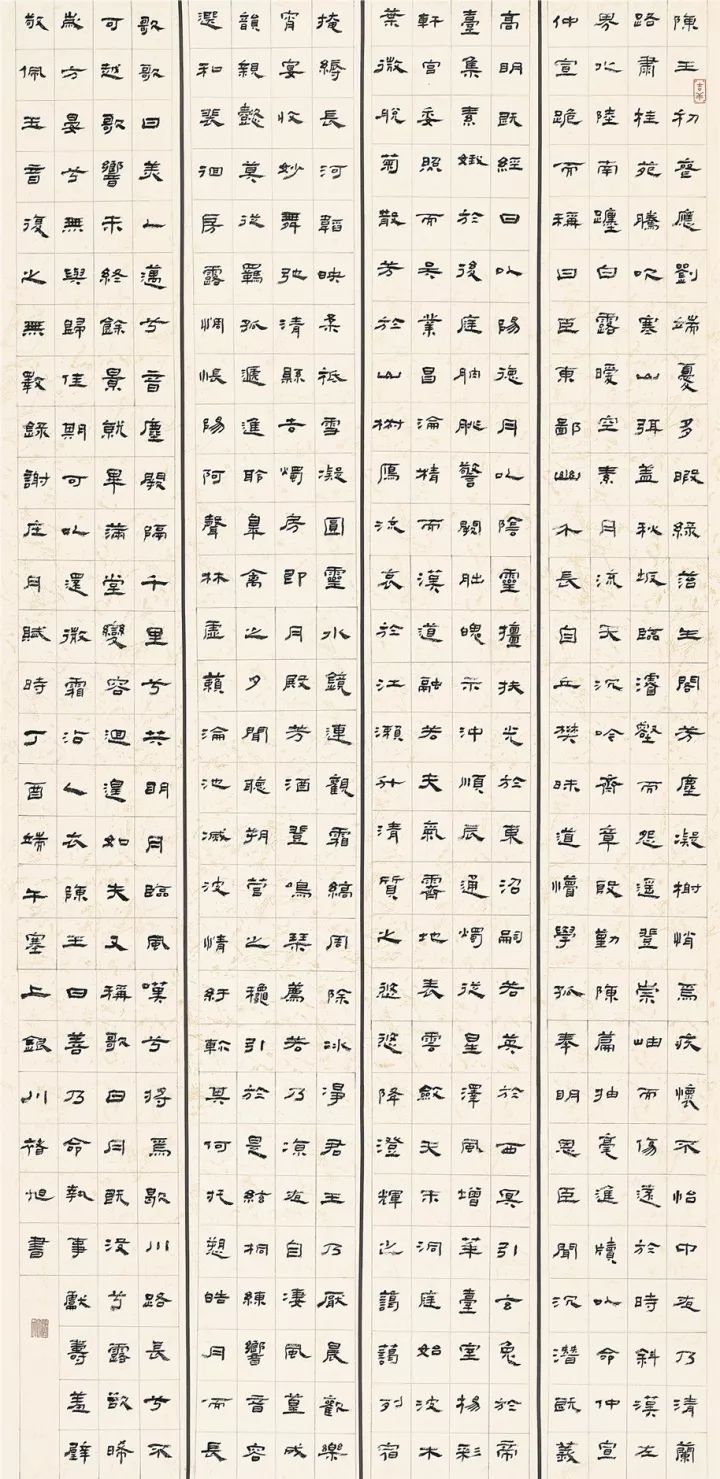 陳王初喪應劉端憂多暇綠苔生閣芳塵凝榭悄焉疚懷不怡中夜乃清蘭
路肅桂苑騰吹寒山弭蓋秋阪臨濬壑而怨遙登崇岫而傷遠於時斜漢左
界北陸南躔白露曖空素月流天沉吟齊章殷勤陳篇抽毫進牘以命仲宣
仲宣跪而稱曰臣東鄙幽介長自丘樊昧道懵學孤奉明恩臣聞沉潛既義
高明既經日以陽德月以陰靈擅扶光於東沼嗣若英於西冥引玄兔於帝
臺集素娥於後庭朒朓警闕朏魄示沖順辰通燭從星澤風增華臺室揚彩
軒宮委照而吳業昌淪精而漢道融若夫氣霽地表雲斂天末洞庭始波木
葉微脫菊散芳於山椒雁流哀於江瀨升清質之悠悠降澄輝之藹藹列宿
掩縟長河韜映柔祇雪凝圓靈水鏡連觀霜縞周除冰淨君王乃厭晨歡樂
宵宴收妙舞弛清縣去燭房即月殿芳酒登鳴琴薦若乃涼夜自淒風篁成
韻親懿莫從羈孤遞進聆皋禽之夕聞聽朔管之秋引於是絃桐練響音容
選和裴洄房露惆悵陽阿聲林虛籟淪池滅波情紆軫其何托愬皓月而長
歌歌曰美人邁兮音塵闕隔千里兮共明月臨風嘆兮將焉歇川路長兮不
可越歌響未終餘景就畢滿堂變容迴遑如失又稱歌曰月既沒兮露欲晞
歲方晏兮無與歸佳期可以還微霜沾人衣陳王曰善乃命執事獻壽羞璧
敬佩玉音復之無斁錄謝庄月賦時丁酉端午塞上銀川書